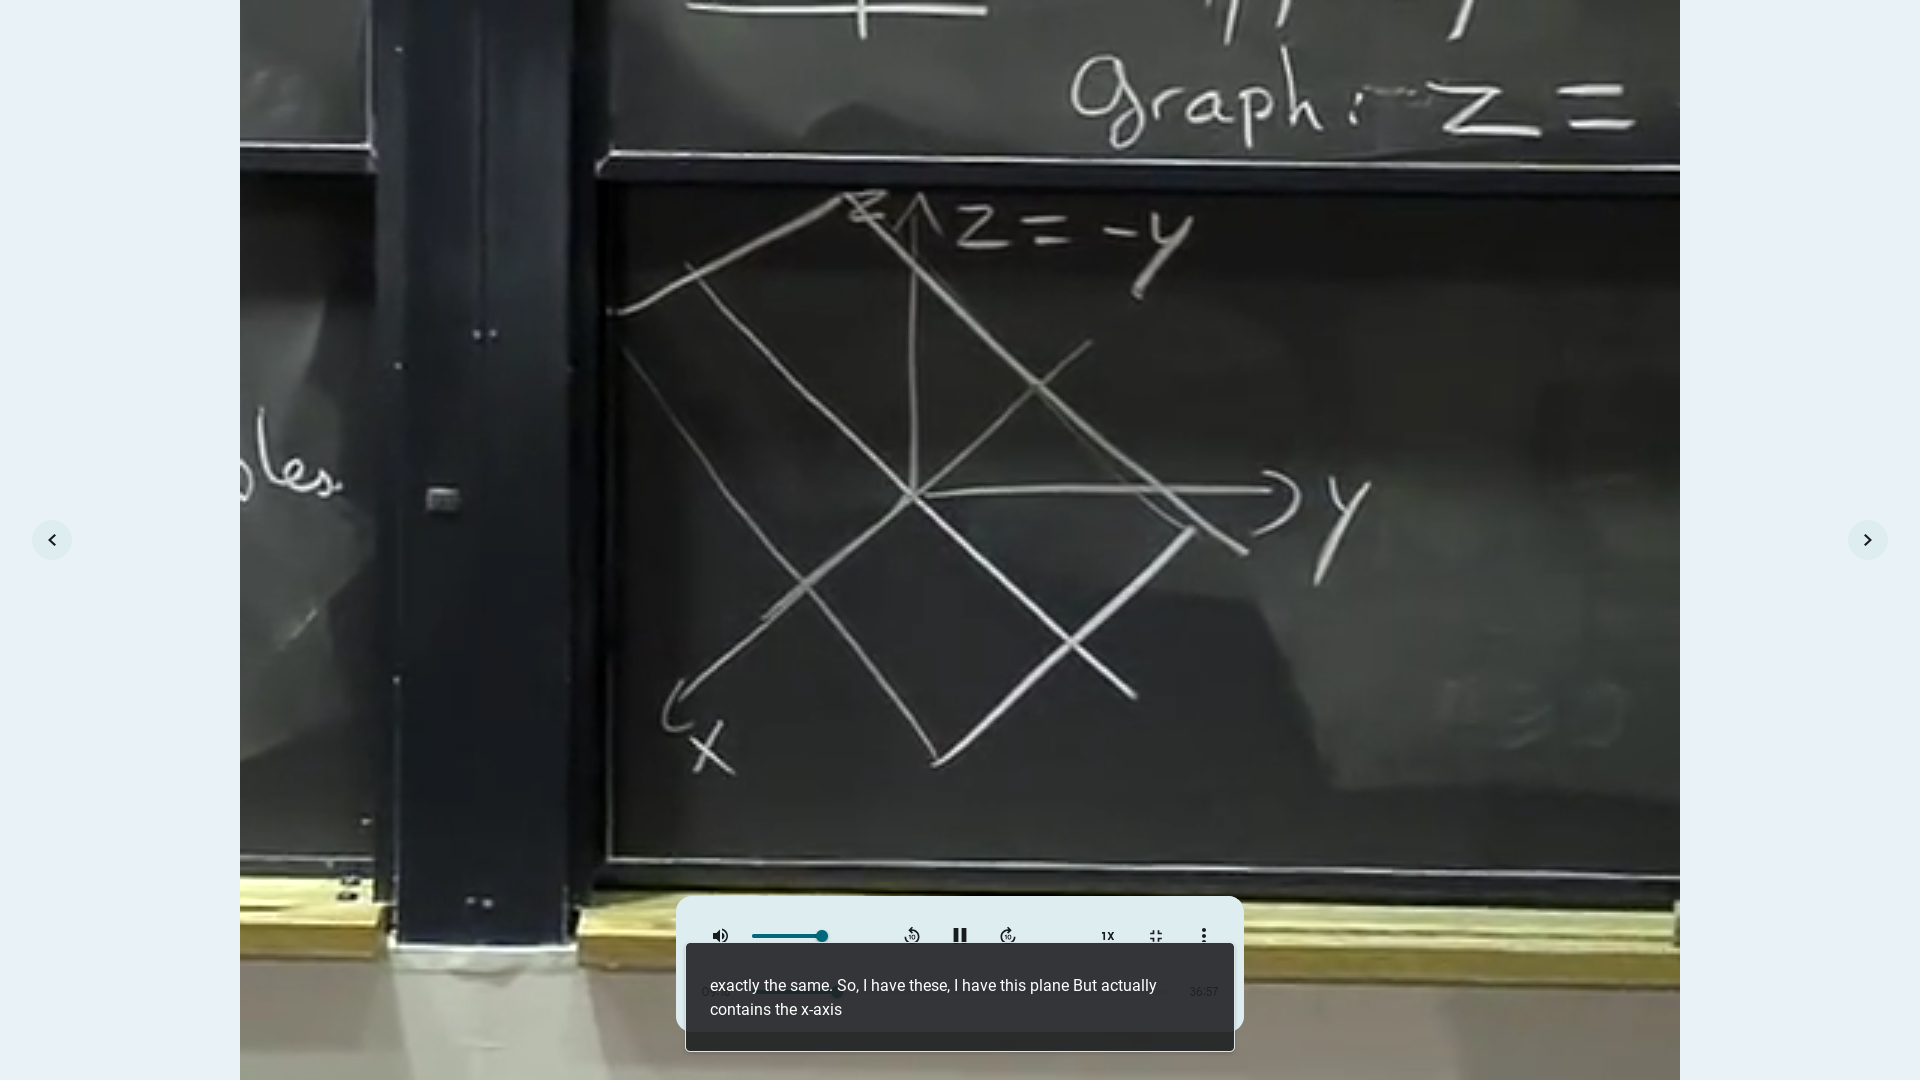 Graph: z =
z z = -y
ples
y
x
1X
exactly the same. So, I have these, I have this plane But actually
contains the x-axis
36:57